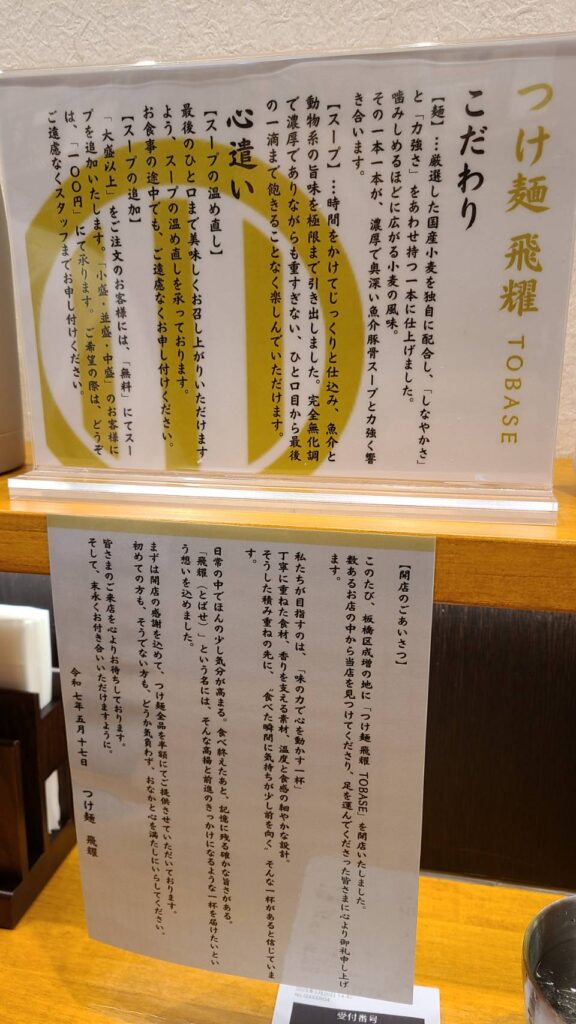 つけ麺 飛燿 TOBASE
こだわり
【麺】…厳選した国産小麦を独自に配合し、「しなやかさ」
と「力強さ」をあわせ持つ一本に仕上げました。
噛みしめるほどに広がる小麦の風味。
その一本一本が、濃厚で奥深い魚介豚骨スープと力強く響
き合います。
【スープ】…時間をかけてじっくりと仕込み、魚介と
動物系の旨味を極限まで引き出しました。完全無化調
で濃厚でありながらも重すぎない、ひと口目から最後
の一滴まで飽きることなく楽しんでいただけます。
心遣い
【スープの温め直し】
最後のひと口まで美味しくお召し上がりいただけます
よう、スープの温め直しを承っております。
お食事の途中でも、ご遠慮なくお申し付けください。
【スープの追加】
「大盛以上」をご注文のお客様には、「無料」にてスー
プを追加いたします。「小盛・並盛・中盛」のお客様に
は、「一〇〇円」にて承ります。ご希望の際は、どうぞ
ご遠慮なくスタッフまでお申し付けください。
【開店のごあいさつ】
このたび、板橋区成増の地に「つけ麺 飛燿 TOBASE」を開店いたしました。
数あるお店の中から当店を見つけてくださり、足を運んでくださった皆さまに心より御礼申し上げ
ます。
私たちが目指すのは、「味の力で心を動かす一杯」
丁寧に重ねた食材、香りを支える素材、温度と食感の細やかな設計。
そうした積み重ねの先に、“食べた瞬間に気持ちが少し前を向く”そんな一杯があると信じていま
す。
日常の中でほんの少し気分が高まる。食べ終えたあと、記憶に残る確かな旨さがある。
「飛燿(とばせ)」という名には、そんな高揚と前進のきっかけになるような一杯を届けたいとい
う想いを込めました。
まずは開店の感謝を込めて、つけ麺全品を半額にてご提供させていただいております。
初めての方も、そうでない方も、どうか気負わず、おなかと心を満たしにいらしてください。
皆さまのご来店を心よりお待ちしております。
そして、末永くお付き合いいただけますように。
令和七年五月十七日 つけ麺 飛燿
受付番号